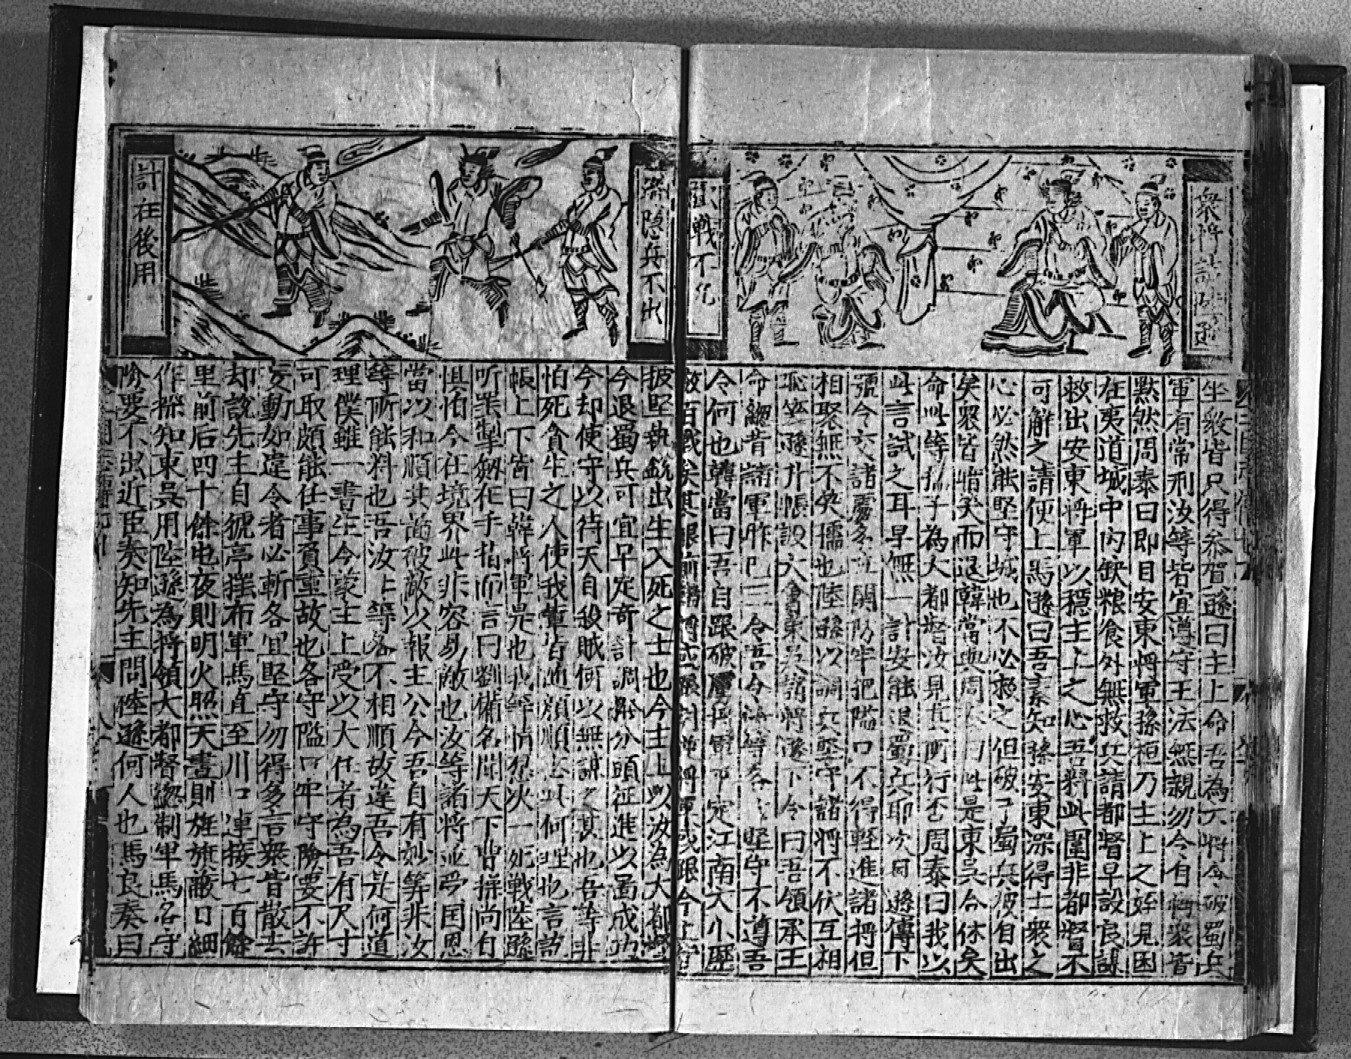 衆將請陸遜
坐衆皆只得恭賀遜曰主上命吾為大將令破蜀兵
軍有常刑汝等皆宜遵守王法無親勿令有悔衆皆
默然周泰曰即目安東將軍孫桓乃主上之姪見困
在夷道城中内缺粮食外無救兵請都督早設良謀
救出安東將軍以穩主上之心吾料此圍非都督不
可解之請便上馬遜曰吾素知孫安東深得士衆之
心必然能堅守城也不必救之但破了蜀兵彼自出
矣衆皆暗笑而退韓當與周泰曰此是東吳合休矣
命此等孺子為大都督汝見其所行否周泰曰我以
此言試之耳早無一計安能退蜀兵耶次日遜傳下
號令交諸處各處關防牢把隘口不得輕進諸將但
相聚無不笑懦也陸遜以調兵堅守諸將不伏互相
恥笑遜升帳設大會東吳諸將遂下令曰吾領承王
命總督諸軍昨已三令吾今汝等各處堅守不遵吾
令何也韓當曰吾自跟破虜將軍平定江南大小歷
數百戰矣其餘前諸將或跟討逆將軍或跟今上
戰不
披堅執銳出生入死之士也今主上以汝為大都督
今退蜀兵可宜早定奇計調撥分頭征進以圖成功
今却使守以待天自殺賊何以無謀之甚也吾等非
怕死貪生之人使我輩皆
帳上下皆曰韓將軍是也我等情愿决一死戰陸遜
听罷掣劍在手指而言曰劉備名聞天下曹操尚自
惧怕今在境界此非容易敵也汝等諸將並受国恩
當以和順共啚破敵以報主公今吾自有妙筭非汝
等所能料也吾汝上等各不相順故違吾令是何道
理僕雖一書生今蒙主上受以大任者為吾有尺寸
可取頗能任事負重故也各守隘口牢守險要不許
妄動如違令者必斬各宜堅守勿得多言衆皆散去
却說先主自猇亭擺布軍馬直至川口連接七百餘
里前后四十餘屯夜則明火照天晝則旌旗蔽日細
作探知東吳用陸遜為將領大都督總制軍馬各守
險要不出近臣奏知先主問陸遜何人也馬良奏曰
隱兵不出
計在後用